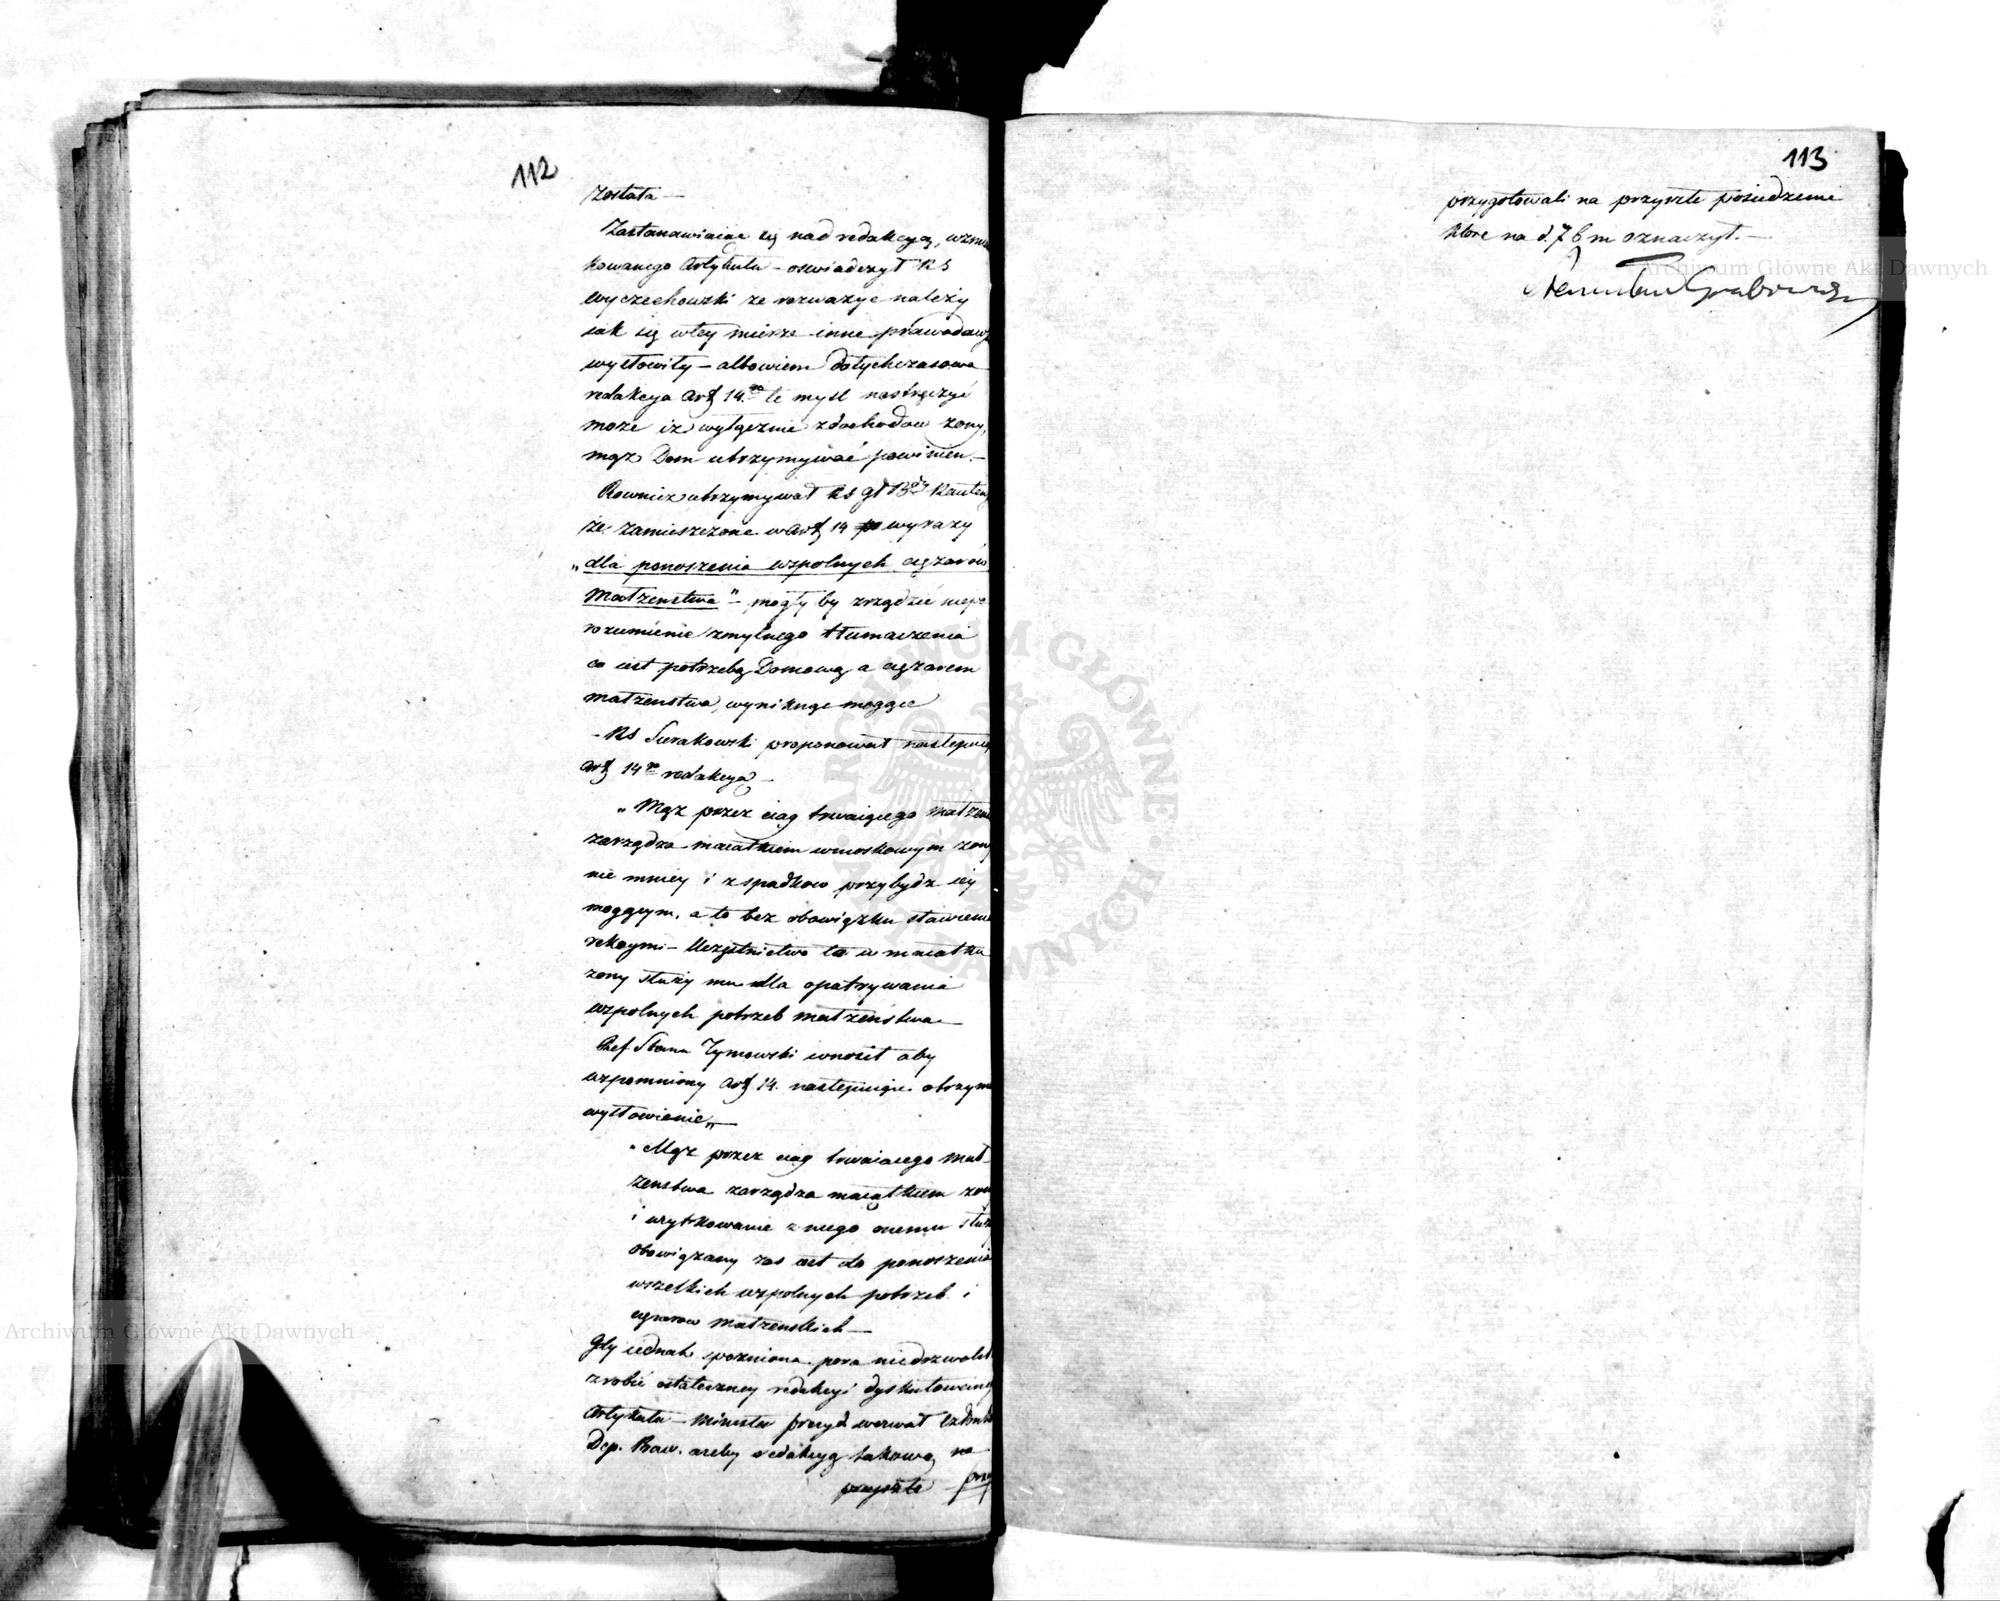 112
została —
Zastanawiaiąc się nad redakcyą, wzmian
kowanego Artykułu – oswiadczył RS
Wyczechowski ze rozwazyc nalezy
iak się wtey mierze inne prawodaws
wysłowiły – albowiem dotychczasowa
redakcya Art 14.go te mysl nastręczyć
może iz wyłącznie zdochodow zony,
mąz Dom utrzymywać powinien. –
Rownież utrzymywał RS
że zamieszczone w Art 14 wyrazy
„dla ponoszenia wspolnych cięzarow
Małzenstwa" – mogły by zrządzić niepo
rozumienie zmylnego tłumaczenia
co iest potrzebą Domową a cięzarem
małzenstwa, wyniknąc mogące
– RS Sierakowski proponował następuią
Art 14go redakcyą –
„Mąz przez ciąg trwaiącego małzens
zarządza maiątkiem wnioskowym zony
nie mniey i z spadkow przybydz iey
mogącym, a to bez obowiązku stawienia
rekoymi – Uczęstnictwo to w maiątku
zony słuzy mu dla opatrywania
wspolnych potrzeb małzeństwa –
Ref Stanu Tymowski wnosił aby
wspomniony Art 14. następuiące otrzyma
wysłowienie „ —
„Mąz przez ciąg trwaiacego mał-
zenstwa zarządza maiątkiem zony
i uzytkowanie z niego onemu służy
obowiązany zas iest do ponoszenia
wszelkich wspolnych potrzeb i
cięzarow małzenskich —
Gdy iednak spozniona pora niedozwolił
zrobić ostateczney redakcyi dyskutowaneg
Artykułu – Minister Prezyd. wezwał Członkow
Dep. Praw. azeby redakcyą takową na
przyszłe przy
113
przygotowali na przyszłe posiedzenie
ktore na d. 7 b m oznaczył. —
Stanisław Grabowski
Archiwum Główne Akt Dawnych
Archiwum Główne Akt Dawnych
ARCHIWUM GŁÓWNE AKT DAWNYCH